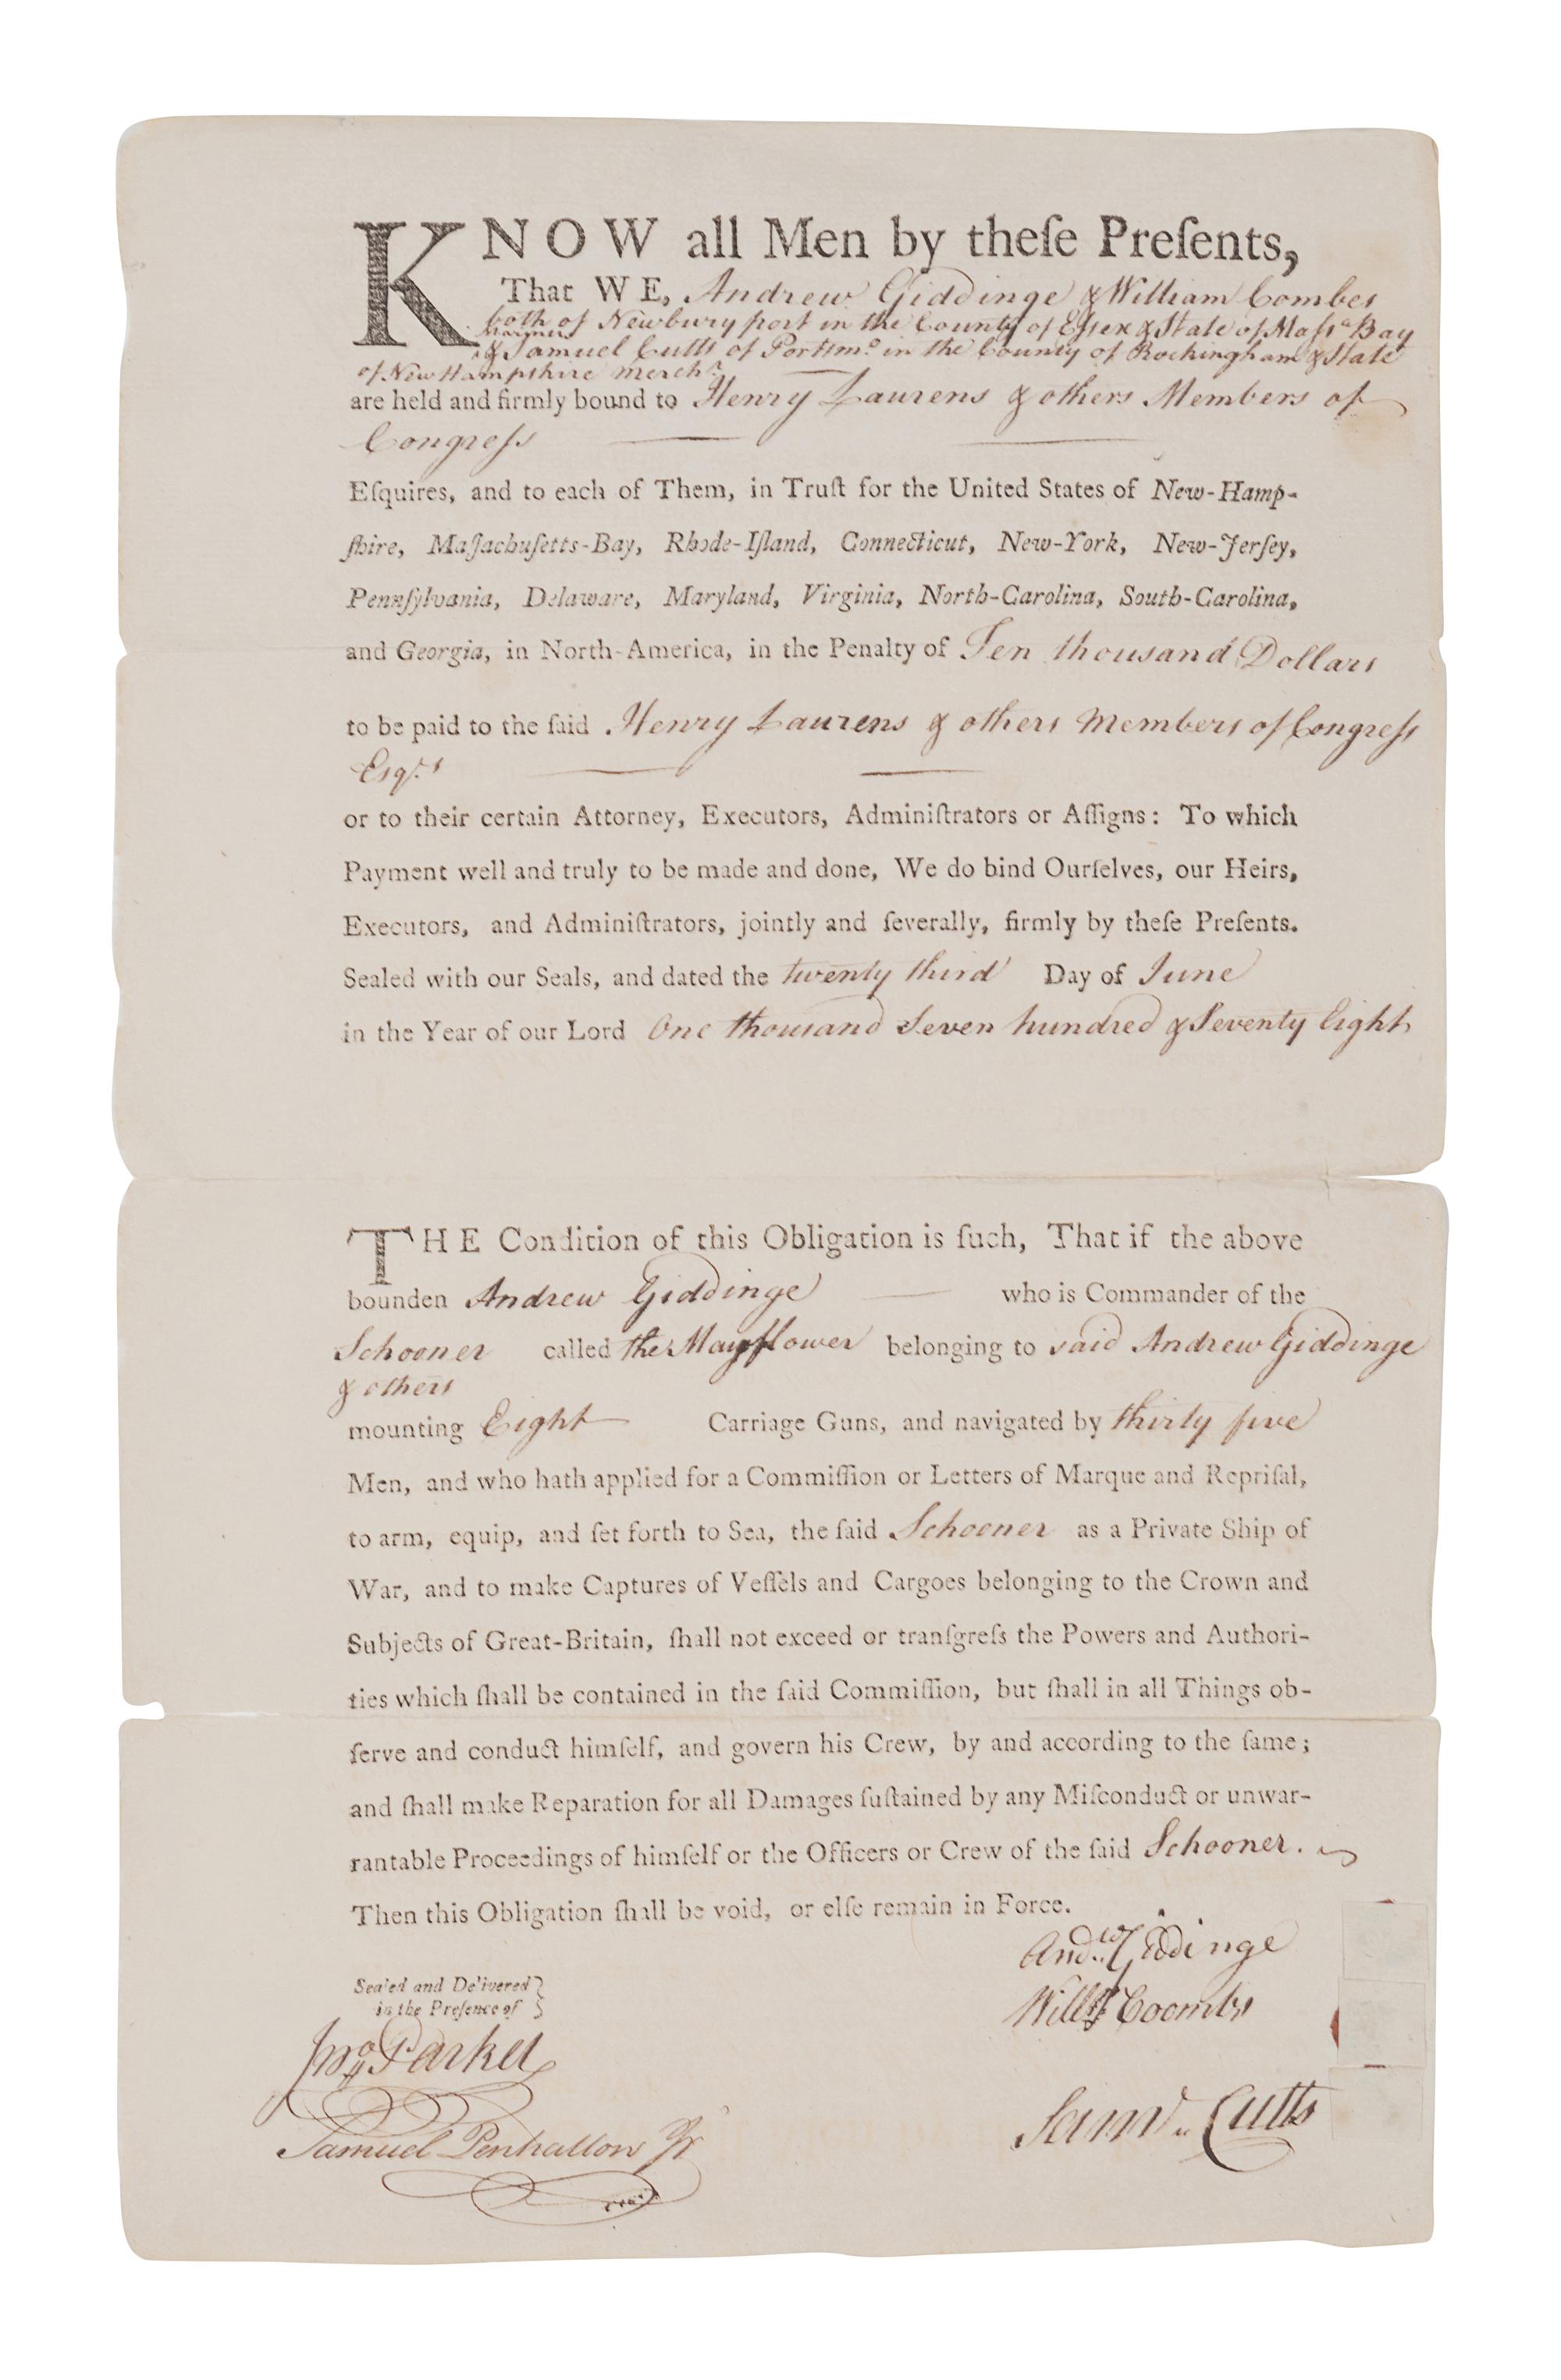 KNOW all Men by theſe Preſents,
That WE, Andrew Giddinge & William Combes
both of Newbury port in the County of Eſsex & State of Maſsa Bay
Mariners
& Samuel Cutts of Portsmo in the County of Rockingham & State
of New Hampshire Mercht
are held and firmly bound to Henry Laurens & others Members of
Congreſs
Eſquires, and to each of Them, in Truſt for the United States of New-Hamp-
ſhire, Maſſachuſetts-Bay, Rhode-Iſland, Connecticut, New-York, New-Jerſey,
Pennſylvania, Delaware, Maryland, Virginia, North-Carolina, South-Carolina,
and Georgia, in North-America, in the Penalty of Ten thousand Dollars
to be paid to the ſaid Henry Laurens & others Members of Congreſs
Esqrs
or to their certain Attorney, Executors, Adminiſtrators or Aſſigns: To which
Payment well and truly to be made and done, We do bind Ourſelves, our Heirs,
Executors, and Adminiſtrators, jointly and ſeverally, firmly by theſe Preſents.
Sealed with our Seals, and dated the twenty third Day of June
in the Year of our Lord One thousand Seven hundred & Seventy Eight
THE Condition of this Obligation is ſuch, That if the above
bounden Andrew Giddinge who is Commander of the
Schooner called the Mayflower belonging to said Andrew Giddinge
& others
mounting Eight Carriage Guns, and navigated by thirty five
Men, and who hath applied for a Commiſſion or Letters of Marque and Repriſal,
to arm, equip, and ſet forth to Sea, the ſaid Schooner as a Private Ship of
War, and to make Captures of Veſſels and Cargoes belonging to the Crown and
Subjects of Great-Britain, ſhall not exceed or tranſgreſs the Powers and Authori-
ties which ſhall be contained in the ſaid Commiſſion, but ſhall in all Things ob-
ſerve and conduct himſelf, and govern his Crew, by and according to the ſame;
and ſhall make Reparation for all Damages ſuſtained by any Miſconduct or unwar-
rantable Proceedings of himſelf or the Officers or Crew of the ſaid Schooner.
Then this Obligation ſhall be void, or elſe remain in Force.
Andw Giddinge
Sealed and Delivered
in the Preſence of
Willm Coombs
Jno Parker
Saml Cutts
Samuel Penhallow Jr